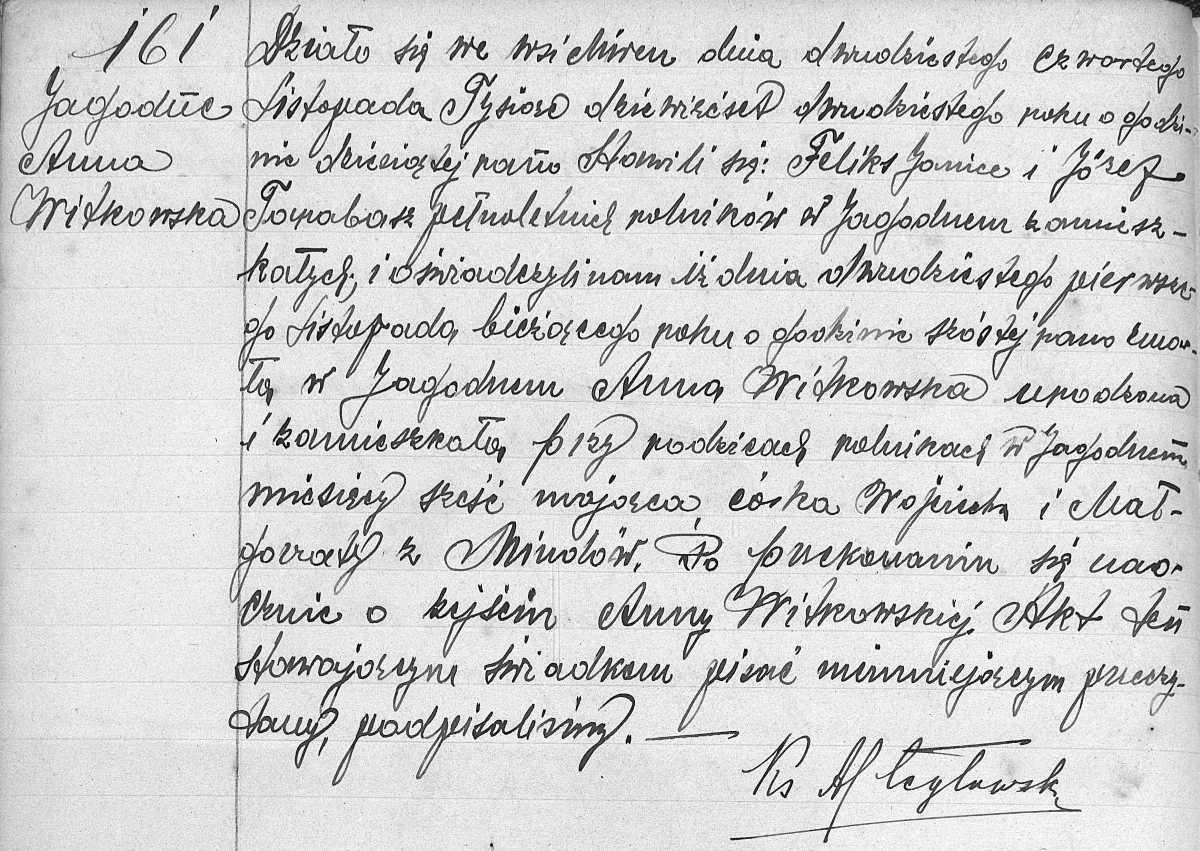 161
Jagodne
Anna
Witkowska
Działo się we wsi dnia dwudziestego czwartego
Listopada Tysiąc dziewięćset dwudziestego roku o godzi-
nie dziesiątej rano Stawili się: Feliks Janiec i Józef
Tarabasz pełnoletnich rolników w Jagodnem zamiesz-
kałych, i oświadczyli nam iż dnia dwudziestego pierwsze-
go Listopada bieżącego roku o godzinie szóstej rano zmar-
ła w Jagodnem Anna Witkowska urodzona
i zamieszkała przy rodzicach rolnikach w Jagodnem
miesięcy sześć mająca córka Wojciecha i Mał-
gorzaty z Mindów. Po przekonaniu się nao-
cznie o zejściu Anny Witkowskiej. Akt ten
stawającym świadkom pisać nieumiejącym przeczy-
tany, podpisaliśmy.
Ks